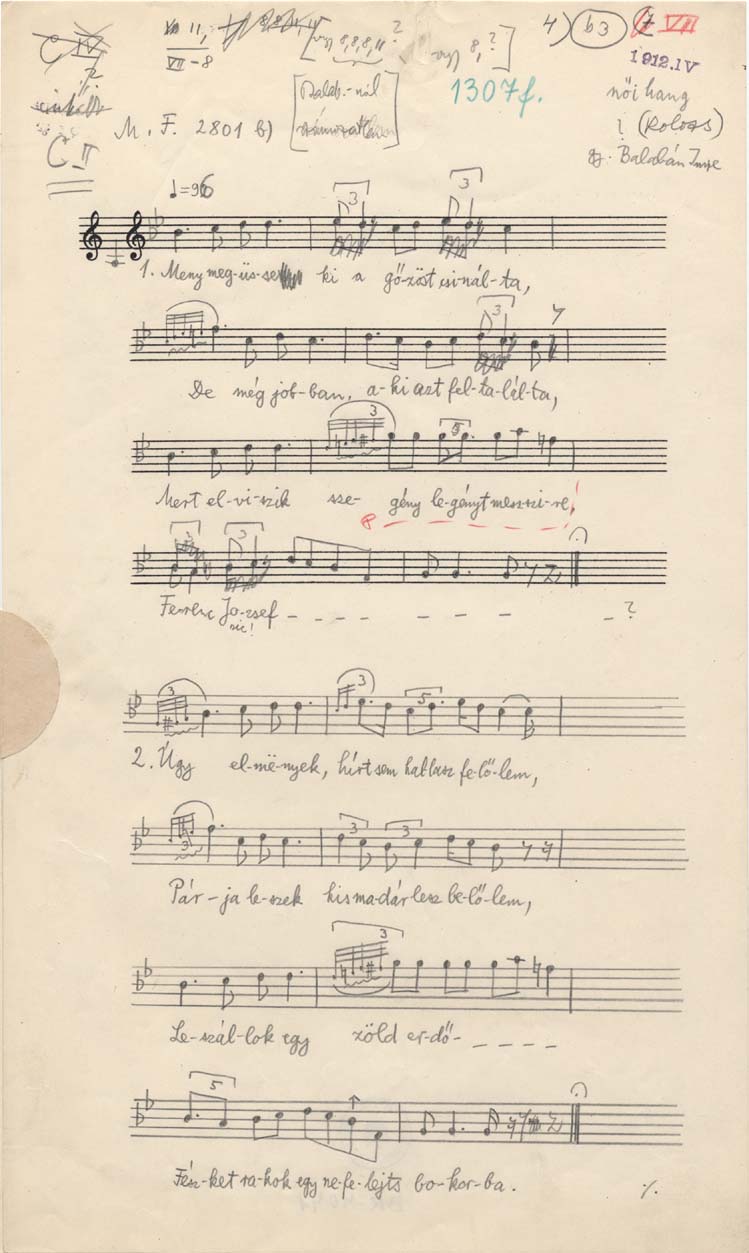 11,
VII-8
8, 8, 8, 11 ?
8, ?
4) b3 7 VII
1912.IV
C IV
[Balab.-nál
1307f.
női hang
M. F. 2801 b)
? (Kolozs)
C II
gy. Balabán Imre
♩=96
3 3
1. Meny meg-üs-se ki a gőzöst csi-nál-ta,
3
De még job-ban, a-ki azt fel-ta-lál-ta,
3 3
Mert el-vi-szik sze-gény le-gényt messzi-re!
3 3
Ferenc Jo-zsef – – – – – – – – ?
sic!
3 3 5
2. Úgy el-më-nyek, hírt sem hallasz fe-lő-lem,
3 3 3
Pár-ja le-szek kis ma-dár lesz be-lő-lem,
3
Le-szál-lok egy zöld er-dő- – – – –
5
Fész-ket ra-kok egy ne-fe-lejts bo-kor-ba. ./.